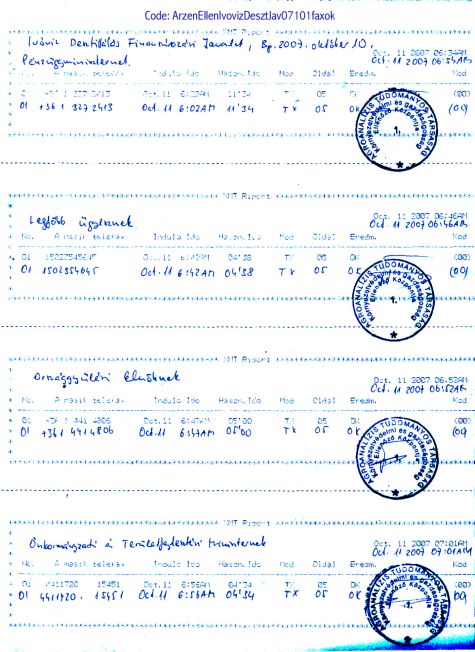 Code: ArzenEllenIvovizDesztJav07101faxok
XMT Riport
Ivóvíz Dentillálás Finanszírozási Javaslat, Bp. 2007. október 10.
Oct. 11 2007 06:34AM
Pénzügyminiszternek
Oct. 11 2007 06:34AM
No. A masik telefax Indulo Ido Haszn.Ido Mod Oldal Eredm. Kod
01 +36 1 327 2413 Oct.11 6:02AM 11'34 TX 05 OK (00)
01 +36 1 327 2413 Oct. 11 6:02AM 11'34 TX 05 OK (00)
AGROANALÍZIS TUDOMÁNYOS TÁRSASÁG
Környezetvédelmi és gazdaságosság
Ellenőrző Központja
1.
XMT Riport
Oct. 11 2007 06:46AM
Legfőbb Ügyésznek
Oct. 11 2007 06:46AM
No. A masik telefax Indulo Ido Haszn.Ido Mod Oldal Eredm. Kod
01 1502354645 Oct.11 6:42AM 04'38 TX 05 OK (00)
01 1502354645 Oct. 11 6:42AM 04'38 TX 05 OK (00)
AGROANALÍZIS TUDOMÁNYOS TÁRSASÁG
Környezetvédelmi és gazdaságosság
Ellenőrző Központja
1.
XMT Riport
Oct. 11 2007 06:52AM
Országgyűlési Elnöknek
Oct. 11 2007 06:52AM
No. A masik telefax Indulo Ido Haszn.Ido Mod Oldal Eredm. Kod
01 +36 1 441 4806 Oct.11 6:47AM 05'00 TX 05 OK (00)
01 +36 1 441 4806 Oct. 11 6:47AM 05'00 TX 05 OK (00)
AGROANALÍZIS TUDOMÁNYOS TÁRSASÁG
Környezetvédelmi és gazdaságosság
Ellenőrző Központja
XMT Riport
Oct. 11 2007 07:01AM
Önkormányzati és Területfejlesztési miniszternek
Oct. 11 2007 07:01AM
No. A masik telefax Indulo Ido Haszn.Ido Mod Oldal Eredm. Kod
01 4411720 15451 Oct.11 6:56AM 04'34 TX 05 OK (00)
01 4411720 . 15451 Oct. 11 6:56AM 04'34 TX 05 OK (00)
AGROANALÍZIS TUDOMÁNYOS TÁRSASÁG
Környezetvédelmi és gazdaságosság
Ellenőrző Központja
1.